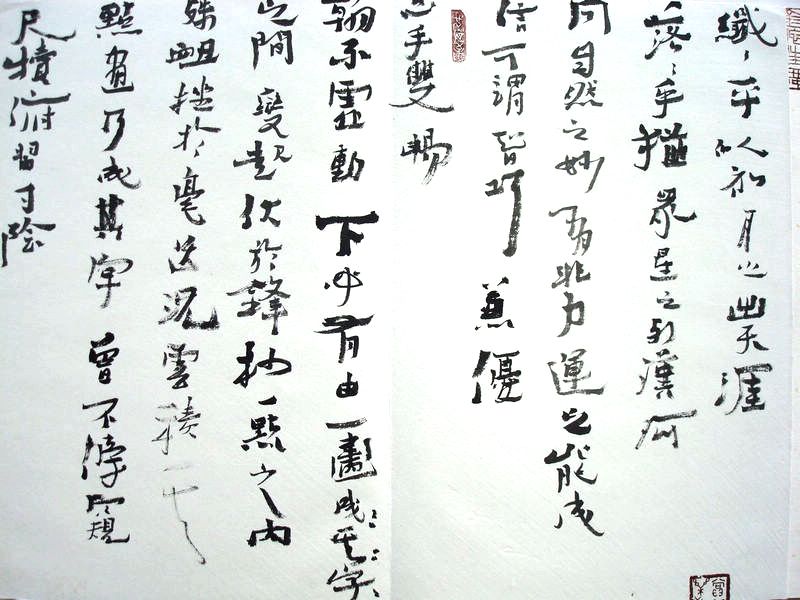 纖〻乎似初月之出天涯
落〻乎猶眾星之列漢河
同自然之妙有非力運之能成
信可謂智巧兼優
心手雙暢
翰不虛動下必有由一畫成〻其〻字
之間變起伏於鋒杪一點之內
殊衄挫於毫芒況雲積
點畫乃成其字曾不傍窺
尺牘俯習寸陰